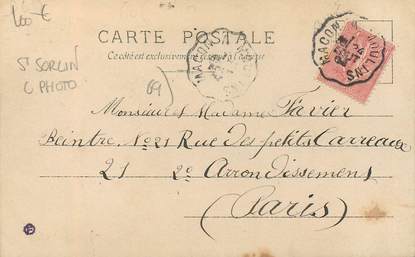 100 €
CARTE POSTALE
Ce côté est exclusivement réservé à l'adresse
MACON MOULINS
MACON MOULINS
St SORLIN
C PHOTO
69
Monsieur et Madame Favier
Peintre. No 21 Rue des petits Carreaux
21 2e Arrondissement
(Paris)